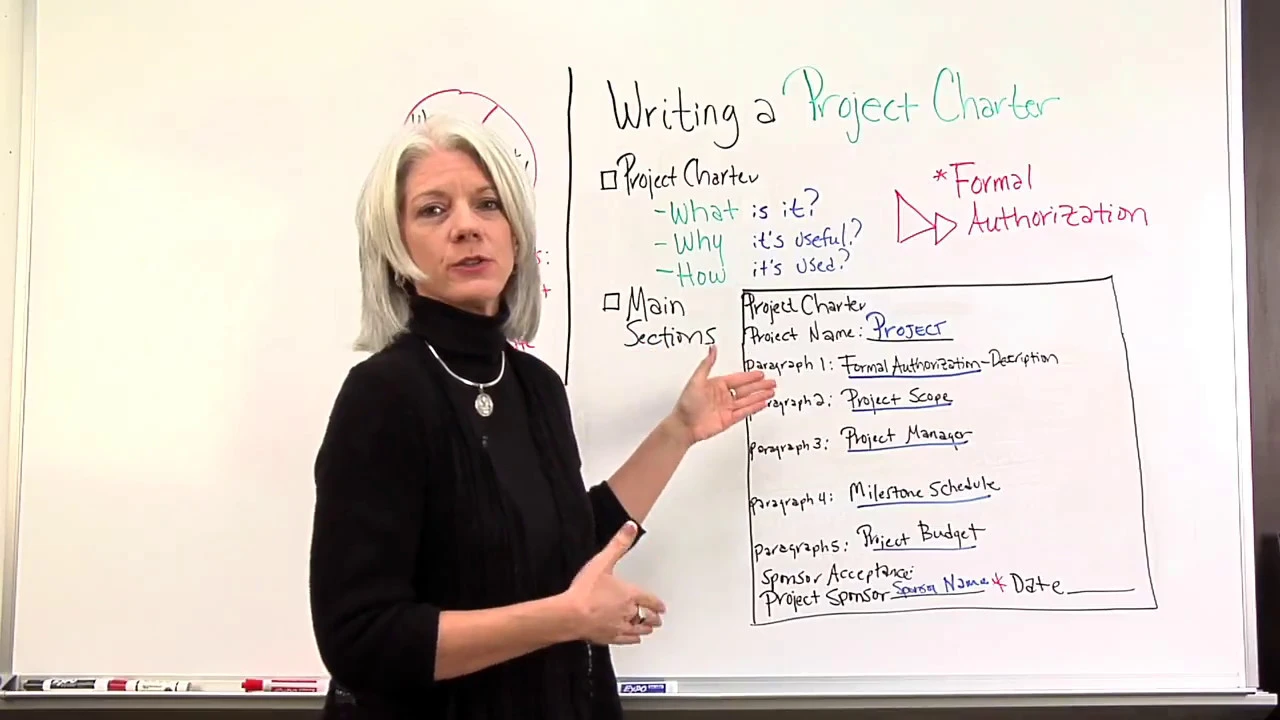 Writing a Project Charter
Project Charter
- What is it?
- Why it's useful?
- How it's used?
* Formal
Authorization
Main
Sections
Project Charter
Project Name: PROJECT
Paragraph 1: Formal Authorization - Description
Paragraph 2: Project Scope
Paragraph 3: Project Manager
Paragraph 4: Milestone Schedule
Paragraph 5: Project Budget
Sponsor Acceptance:
Project Sponsor Sponsor Name * Date
EXPO